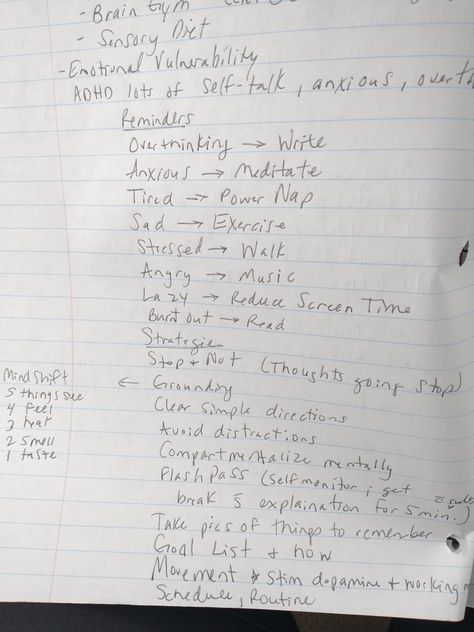 - Brain Gym
- Sensory Diet
- Emotional Vulnerability
ADHD lots of self-talk, anxious, overth
Reminders
Overthinking → Write
Anxious → Meditate
Tired → Power Nap
Sad → Exercise
Stressed → Walk
Angry → Music
Lazy → Reduce Screen Time
Burnt out → Read
Strategie
Stop + Not (Thoughts going stop)
← Grounding
Mindshift
5 things see
4 feel
3 hear
2 smell
1 taste
Clear simple directions
Avoid distractions
Compartmentalize mentally
Flash Pass (self monitor; get
break s explaination for 5 min.)
Take pics of things to remember
Goal List + how
Movement stim dopamine + working
Schedule, Routine